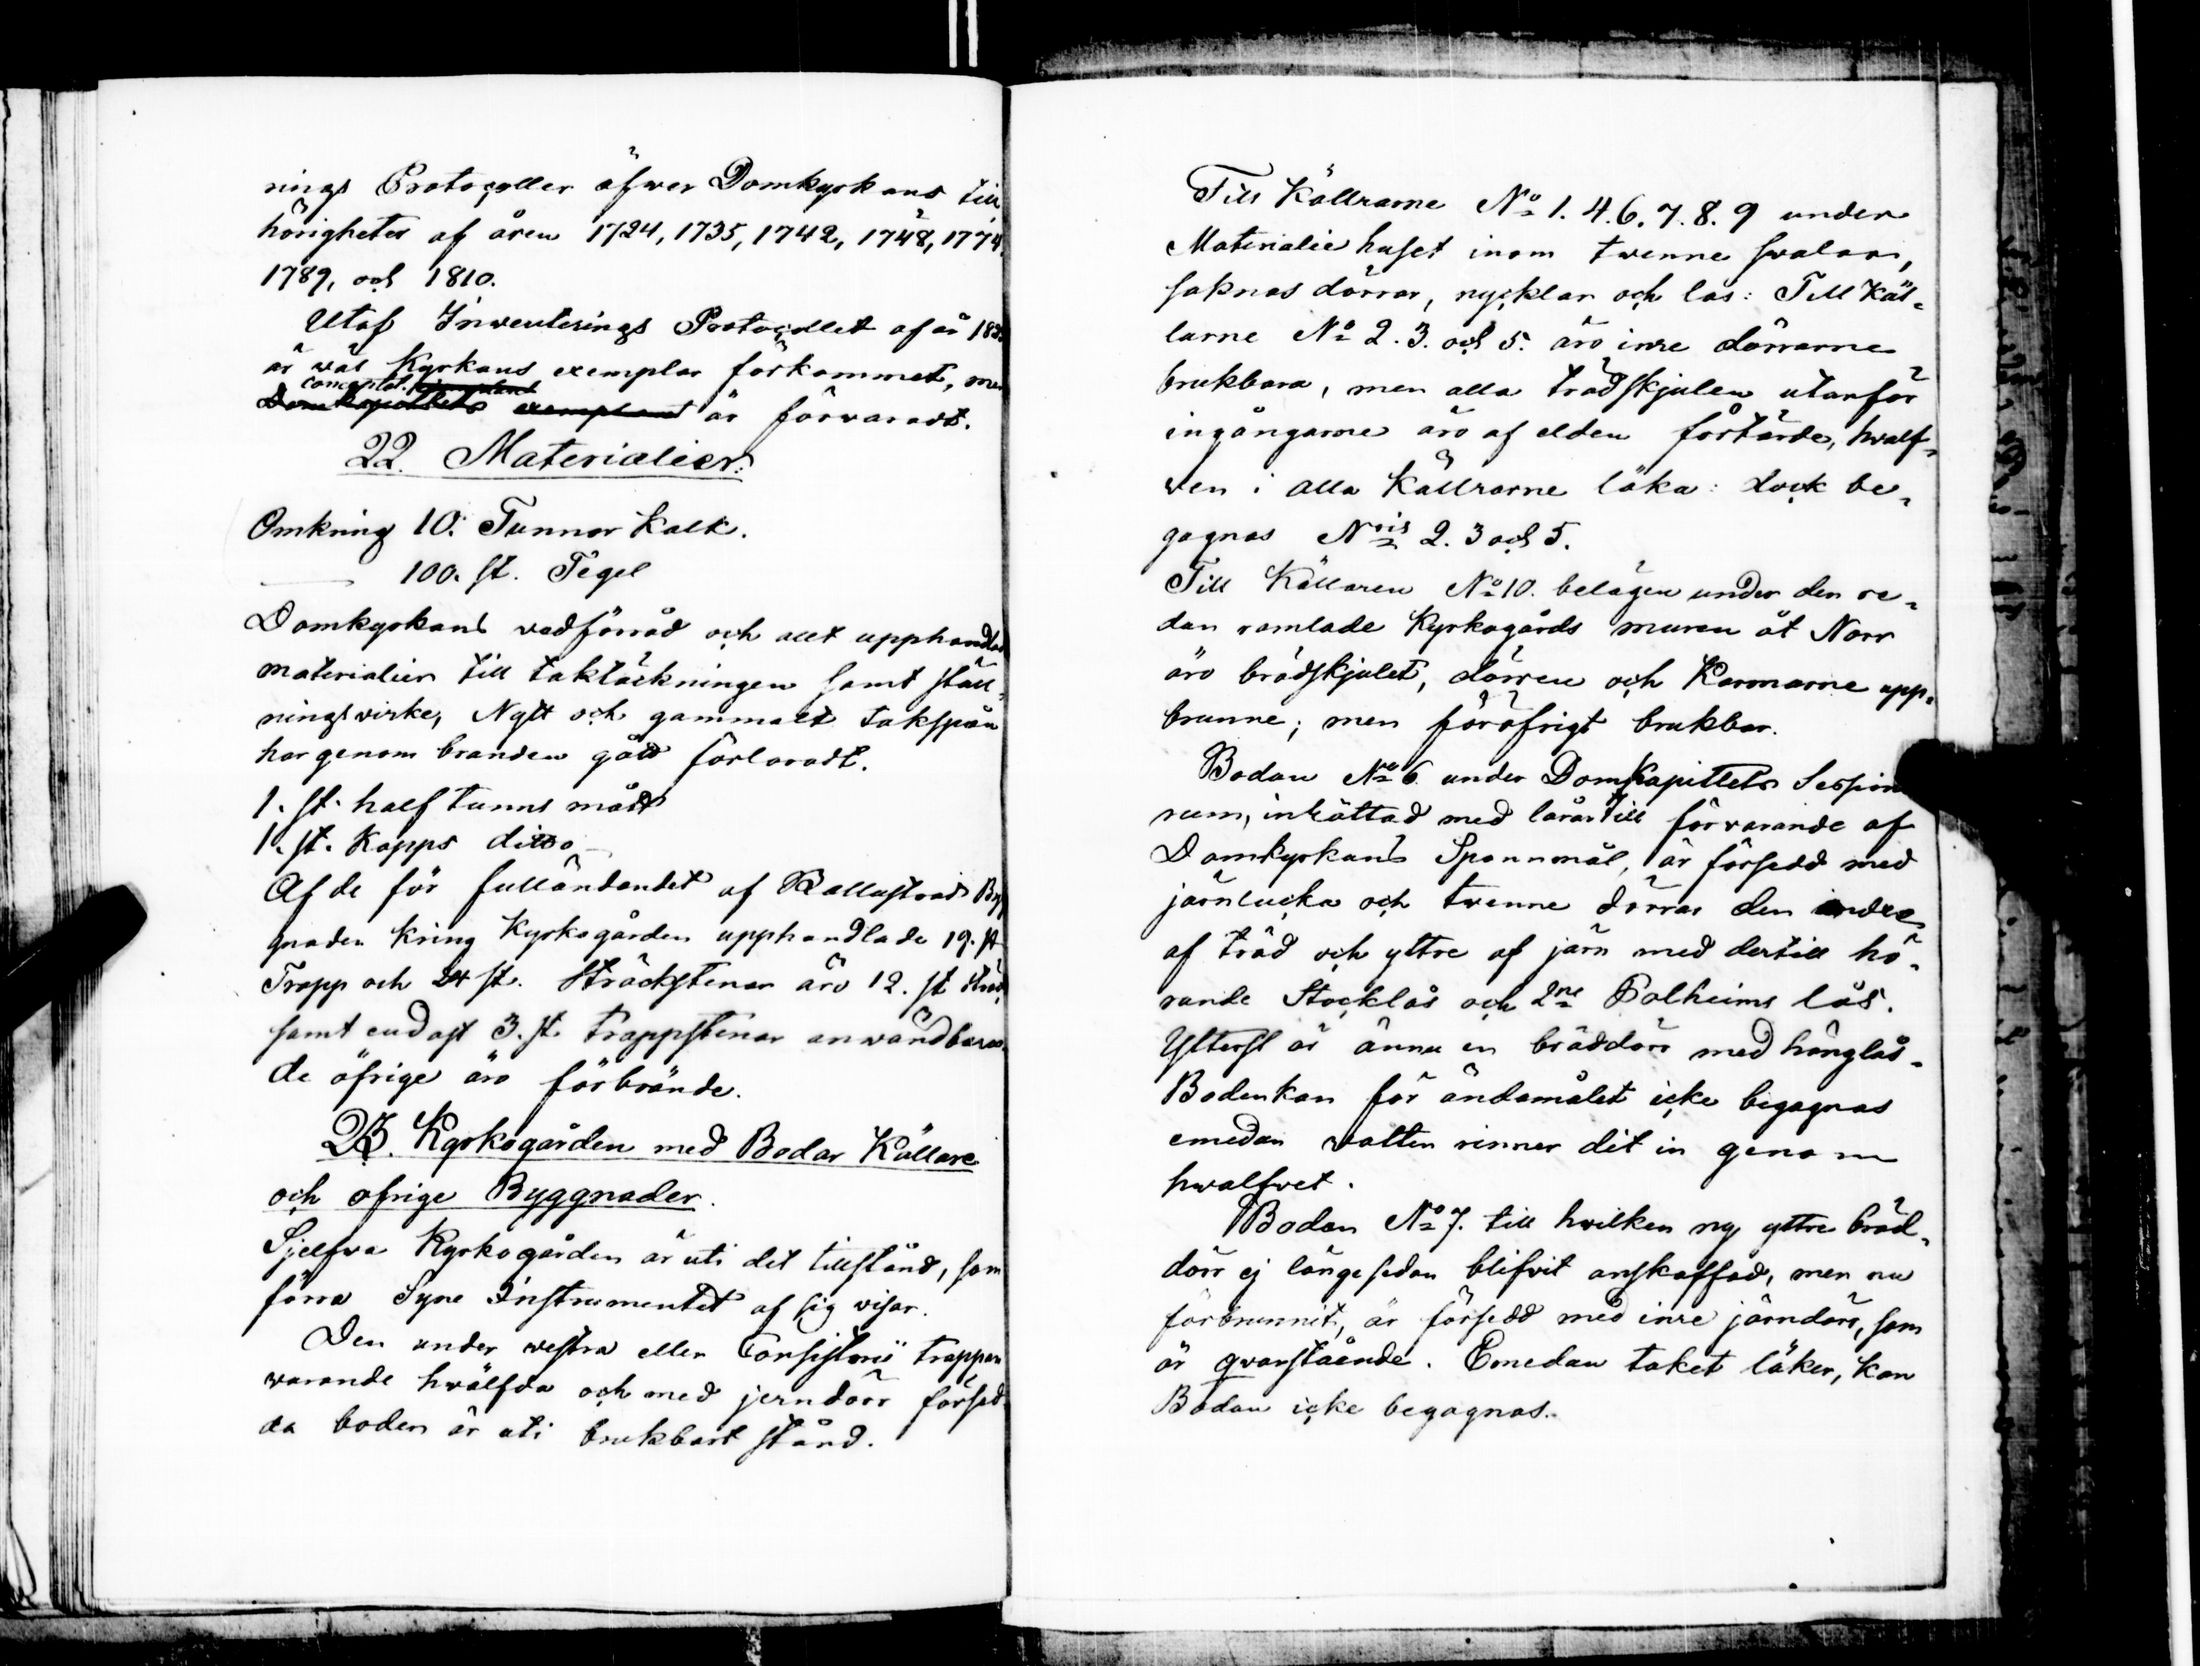 nings Protocoller öfwer Domkyrkans till
hörigheter af åren 1724, 1735, 1742, 1748, 1774,
1789, och 1810.
Utaf Inwenterings Protocollet af år
är wäl Kyrkans exemplar förkommet, men
conceptet
Domkapittlets exemplaret är förvaradt.
22. Materialier:
Omkring 10. Tunnor Kalk.
—— 100. st. Tegel
Domkyrkans vedförråd och allt upphandlad
materialier till taktäckningen samt ställ-
ningsvirke, Nytt och gammalt takspån
har genom branden gått förloradt.
1. st. half tunns mått
1. st. Kapps ditto
Af de för fulländandet af Ballustrad Byg
gnaden kring Kyrkogården upphandlade 19. st
Trapp och 24 st. Sträckstenar äro 12. st sträck
samt endast 3. st. trappstenar anwändbara
de öfrige äro förbrände.
23. Kyrkogården med Bodar Källare
och öfrige Byggnader.
Sjelfva Kyrkogården är uti det tillstånd, som
förra Syne Instrumentet af sig visar.
Den under westra eller Consistorii trappan
warande hwälfda och med jerndörr försed-
da boden är uti brukbart stånd.
Till Källrarne No 1. 4. 6. 7. 8. 9 under
Materialie huset inom twenne swalar,
saknas dörrar, nycklar och lås: Till Käl-
larne No 2. 3. och 5. äro inre dörrarne
brukbara, men alla trädskjulen utanför
ingångarne äro af elden förtärde, hwalf-
wen i alla Källrarne läka: dock be-
gagnas Nris 2. 3 och 5.
Till Källaren No 10. belägen under den re-
dan ramlade Kyrkogårds muren åt Norr
äro brädskjulet, dörren och Karmarne upp-
brunne; men föröfrigt brukbar.
Bodan No 6. under DomKapittlets Sessions
rum, inrättad med lårar till förvarande af
Domkyrkans Spannmål, är försedd med
järnlucka och twenne dörrar den indre
af träd och yttre af järn med dertill hö-
rande Stocklås och 2ne Polheims lås.
Ytterst är ännu en bräddörr med hänglås-
Boden kan för ändamålet icke begagnas
emedan watten rinner dit in genom
hwalfvet.
Bodan No 7. till hwilken ny yttre bräd-
dörr ej länge sedan blifvit anskaffad, men nu
förbrunnit, är försedd med inre järndörr, som
är qwarstående. Emedan taket läker, kan
Bodan icke begagnas.